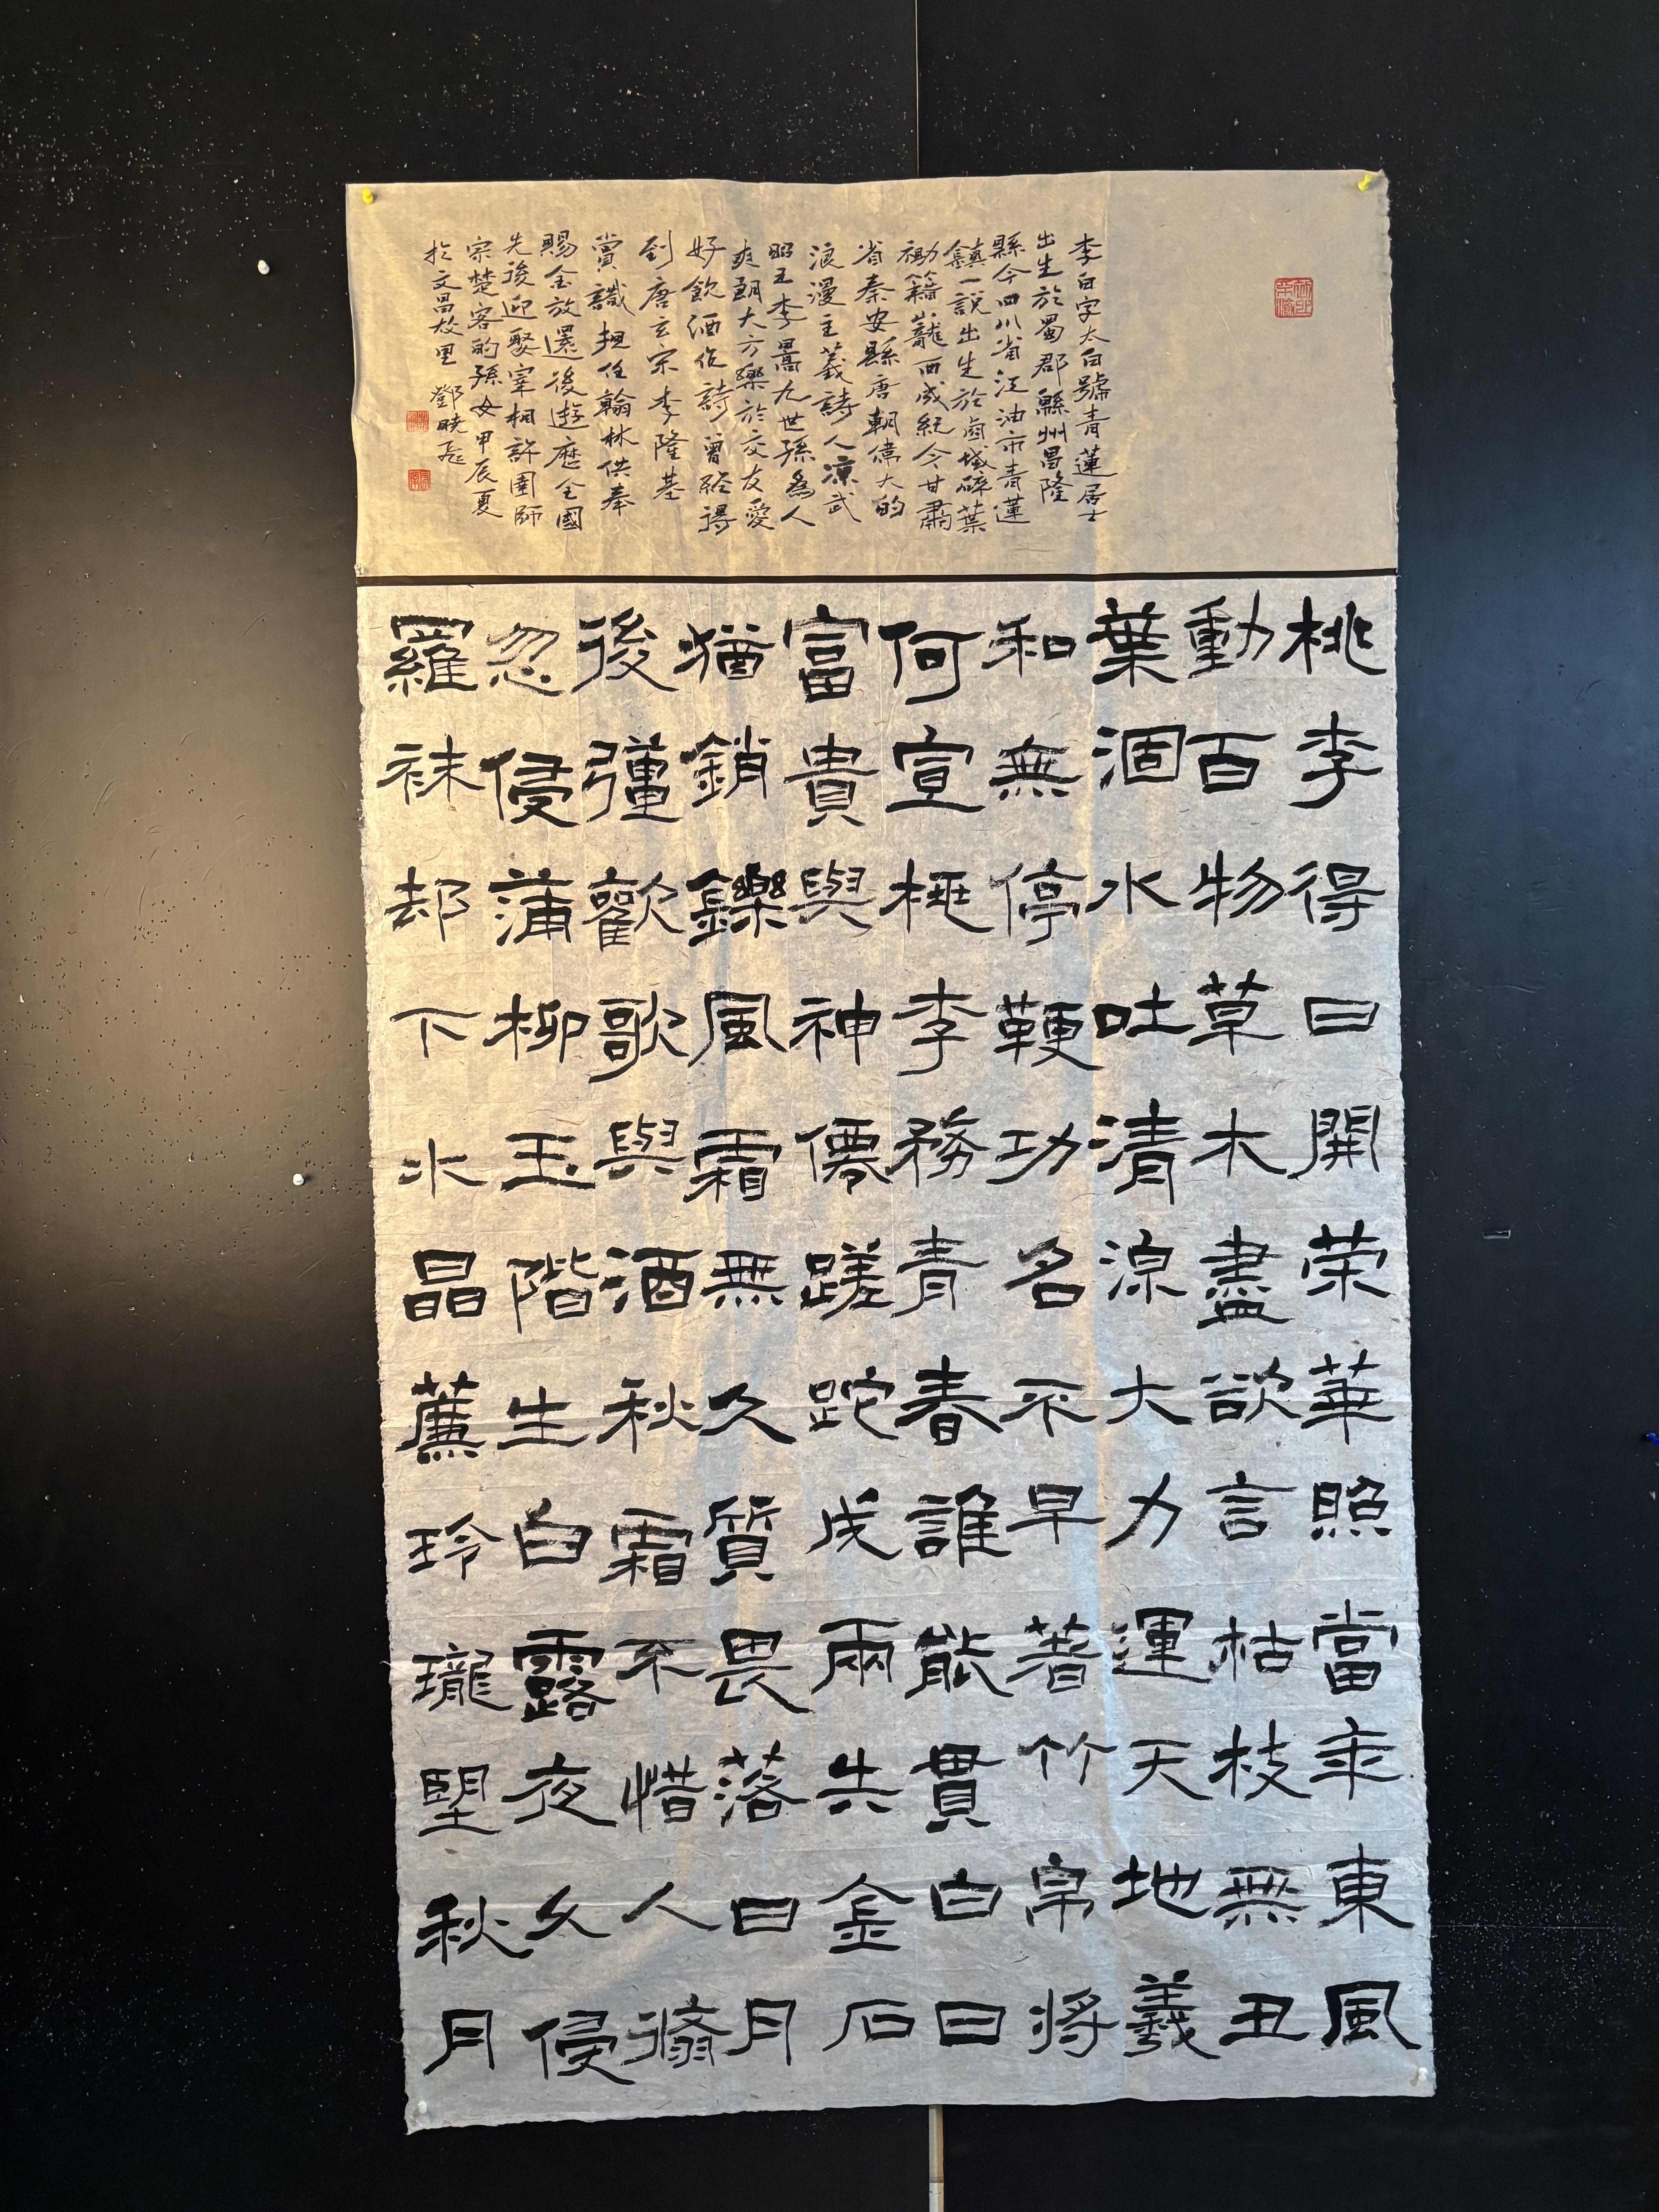 李白字太白號青蓮居士
出生於蜀郡緜州昌隆
縣今四川省江油市青蓮
鎮一說出生於西域碎葉
祖籍隴西成紀今甘肅
省秦安縣唐朝偉大的
浪漫主義詩人涼武
昭王李暠九世孫為人
爽朗大方樂於交友愛
好飲酒作詩曾經得
到唐玄宗李隆基
賞識担任翰林供奉
賜金放還後遊歷全國
先後迎娶宰相許圉師
宗楚客的孫女甲辰夏
於文昌故里 鄧曉
桃李得日開荣華照當年東風
動百物草木盡欲言枯枝無丑
葉涸水吐清凉大力運天地羲
和無停鞭功名不早著竹帛將
何宣桃李務青春誰能貫白日
富貴與神僊蹉跎成兩失金石
猶銷鑠風霜無久質畏落日月
後彊歡歌與酒秋霜不惜人倏
忽侵蒲柳玉階生白露夜久侵
羅袜却下水晶簾玲瓏望秋月